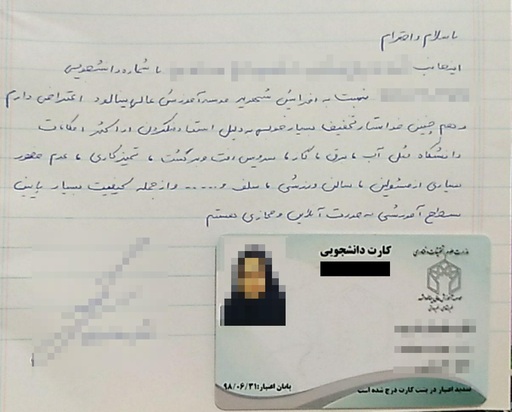 با سلام و احترام
اینجانب با شماره دانشجویی
نسبت به افزایش شهریه موسسه آموزش عالی اعتراض دارم
و هم چنین خواستار تخفیف بسیار به دلیل استفاده نکردن از اکثر امکانات
دانشگاه مثل آب، برق، گاز، سرویس رفت و برگشت، تمیزکاری، عدم حضور
بسیاری از مسئولین، سالن ورزشی، سلف و..... و از جمله کیفیت بسیار پایین
سطح آموزشی به صورت آنلاین و مجازی هستم
کارت دانشجویی
وزارت علوم، تحقیقات و فناوری
پایان اعتبار: ۹۸/۰۶/۳۱
تمدید اعتبار در پشت کارت درج شده است